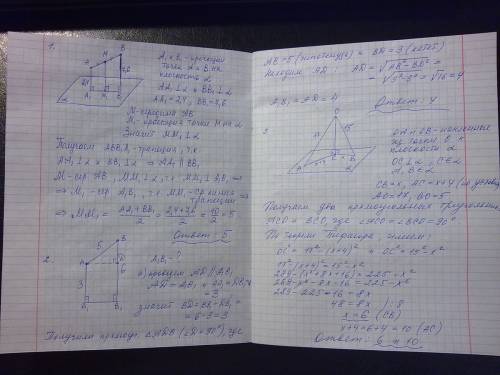 1.
A₁ и B₁ - проекции
точек A и B на
плоскость α
AA₁ ⊥ α и BB₁ ⊥ α
AA₁ = 2,4, BB₁ = 7,6
M - середина AB
M₁ - проекция точки M на α
Значит MM₁ ⊥ α
Получаем ABB₁A₁ - трапеция, т.к.
AA₁ ⊥ α и BB₁ ⊥ α ⇒ AA₁ ∥ BB₁
M - сер AB, MM₁ ⊥ α, т.к. MM₁ ∥ BB₁ ⇒
⇒ M₁ - сер A₁B₁, т.к. MM₁ - ср. линия
трапеции ⇒
⇒ MM₁ = (AA₁ + BB₁)/2 = (2,4 + 7,6)/2 = 10/2 = 5
Ответ: 5
2.
A₁B₁ - ?
а) проведем AD ∥ A₁B₁
AD = A₁B₁ и AA₁ = DB₁ =
= 3
значит BD = BB₁ - DB₁ =
= 6 - 3 = 3
Получили прямоуг. △ADB (∠D = 90°), где
AB = 5 (гипотенуза) и BD = 3 (катет)
Находим AD: AD = √(AB² - BD²) =
= √(5² - 3²) = √16 = 4
A₁B₁ = AD = 4
Ответ: 4
3.
OA и OB - наклонные
из точки O к
плоскости α
OC ⊥ α, C ∈ α
A, B ∈ α
CB = x, AC = x + 4 (по условию)
AO = 17, BO = 15
Получаем два прямоугольных треугольника
ACO и BCO, где ∠ACO = ∠BCO = 90°
По теореме Пифагора, имеем:
OC² = 17² - (x+4)² и OC² = 15² - x²
17² - (x+4)² = 15² - x²
289 - (x² + 8x + 16) = 225 - x²
289 - x² - 8x - 16 = 225 - x²
289 - 225 - 16 = 8x
48 = 8x | : 8
x = 6 (CB)
x + 4 = 6 + 4 = 10 (AC)
Ответ: 6 и 10.